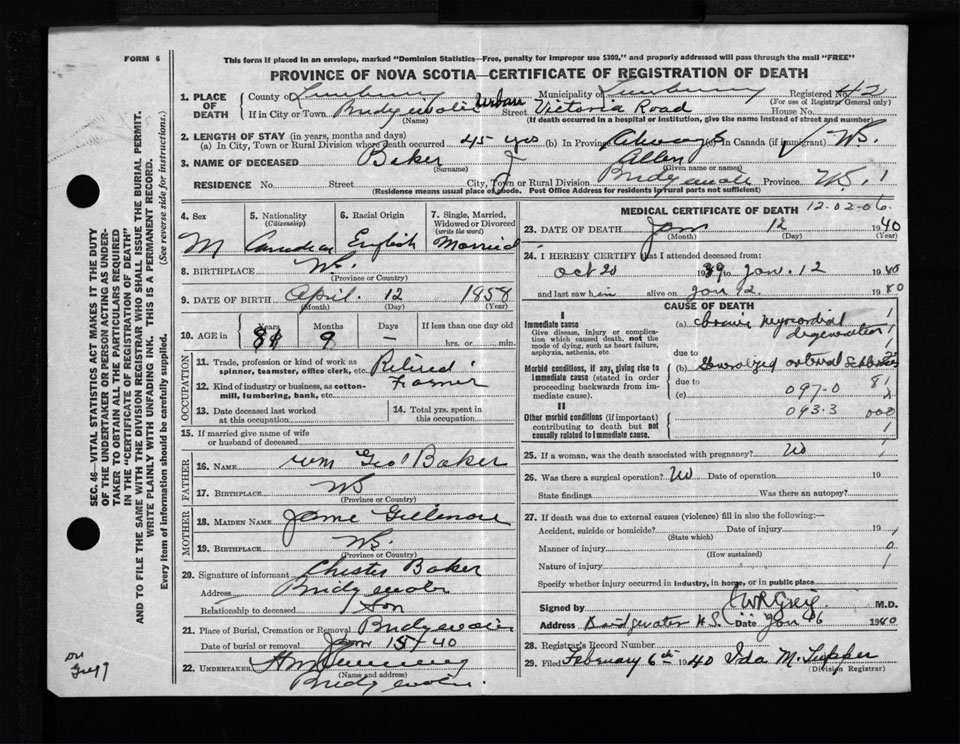 FORM 6
This form if placed in an envelope, marked "Dominion Statistics—Free, penalty for improper use $300," and properly addressed will pass through the mail "FREE"
PROVINCE OF NOVA SCOTIA—CERTIFICATE OF REGISTRATION OF DEATH
1. PLACE OF DEATH
County of Lunenburg Municipality of Lunenburg Registered No. 42
(For use of Registrar General only)
If in City or Town Bridgewater Urban Street Victoria Road House No.
(Name) (If death occurred in a hospital or institution, give the name instead of street and number)
2. LENGTH OF STAY (in years, months and days)
(a) In City, Town or Rural Division where death occurred 45 yrs (b) In Province Always (c) In Canada (if immigrant) NS.
3. NAME OF DECEASED Baker Allen
(Surname) (Given name or names)
RESIDENCE No. Street City, Town or Rural Division Bridgewater Province N.S. 1
(Residence means usual place of abode. Post Office Address for residents in rural parts not sufficient)
4. Sex M
5. Nationality (Citizenship) Canadian
6. Racial Origin English
7. Single, Married, Widowed or Divorced (write the word) Married
8. BIRTHPLACE NS.
(Province or Country)
9. DATE OF BIRTH April 12 1858
(Month) (Day) (Year)
10. AGE in Years Months Days If less than one day old
81 9 — hrs. or min.
OCCUPATION
11. Trade, profession or kind of work as spinner, teamster, office clerk, etc. Retired
12. Kind of industry or business, as cotton-mill, lumbering, bank, etc. Farmer
13. Date deceased last worked at this occupation
14. Total yrs. spent in this occupation
15. If married give name of wife or husband of deceased
FATHER
16. NAME Wm Geo Baker
17. BIRTHPLACE NS
(Province or Country)
MOTHER
18. MAIDEN NAME
19. BIRTHPLACE NS.
(Province or Country)
20. Signature of informant Chester Baker
Address Bridgewater
Relationship to deceased Son
21. Place of Burial, Cremation or Removal Bridgewater
Date of burial or removal Jan 15/40
22. UNDERTAKER
(Name and address)
Bridgewater.
MEDICAL CERTIFICATE OF DEATH 12-02-06
23. DATE OF DEATH Jan 12 1940
(Month) (Day) (Year)
24. I HEREBY CERTIFY that I attended deceased from:
Oct 20 1939 to Jan. 12 1940
and last saw him alive on Jan 12 1940
CAUSE OF DEATH
I
Immediate cause
Give disease, injury or complication which caused death, not the mode of dying, such as heart failure, asphyxia, asthenia, etc.
(a) myocardial degeneration
due to
Morbid conditions, if any, giving rise to immediate cause (stated in order proceeding backwards from immediate cause).
(b) Generalized
due to 81
(c) 097-0 2
II
093-3 000
Other morbid conditions (important) contributing to death but not causally related to immediate cause.
25. If a woman, was the death associated with pregnancy? No
26. Was there a surgical operation? No Date of operation
State findings Was there an autopsy?
27. If death was due to external causes (violence) fill in also the following:—
Accident, suicide or homicide? Date of injury 19
(State which)
Manner of injury
(How sustained)
Nature of injury
Specify whether injury occurred in industry, in home, or in public place
Signed by M.D.
Address Bridgewater N.S. Date Jan 16 1940
28. Registrar's Record Number
29. Filed February 6th 1940 Ida M. Tupper
(Division Registrar)
SEC. 46—VITAL STATISTICS ACT MAKES IT THE DUTY
OF THE UNDERTAKER OR PERSON ACTING AS UNDER-
TAKER TO OBTAIN ALL THE PARTICULARS REQUIRED
IN THE "CERTIFICATE OF REGISTRATION OF DEATH"
AND TO FILE THE SAME WITH THE DIVISION REGISTRAR WHO SHALL ISSUE THE BURIAL PERMIT.
WRITE PLAINLY WITH UNFADING INK. THIS IS A PERMANENT RECORD.
Every item of information should be carefully supplied. (See reverse side for instructions.)